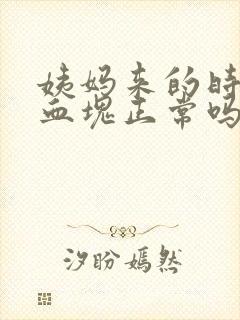 姨妈来的时
血块正常吗
汐盼嫣然